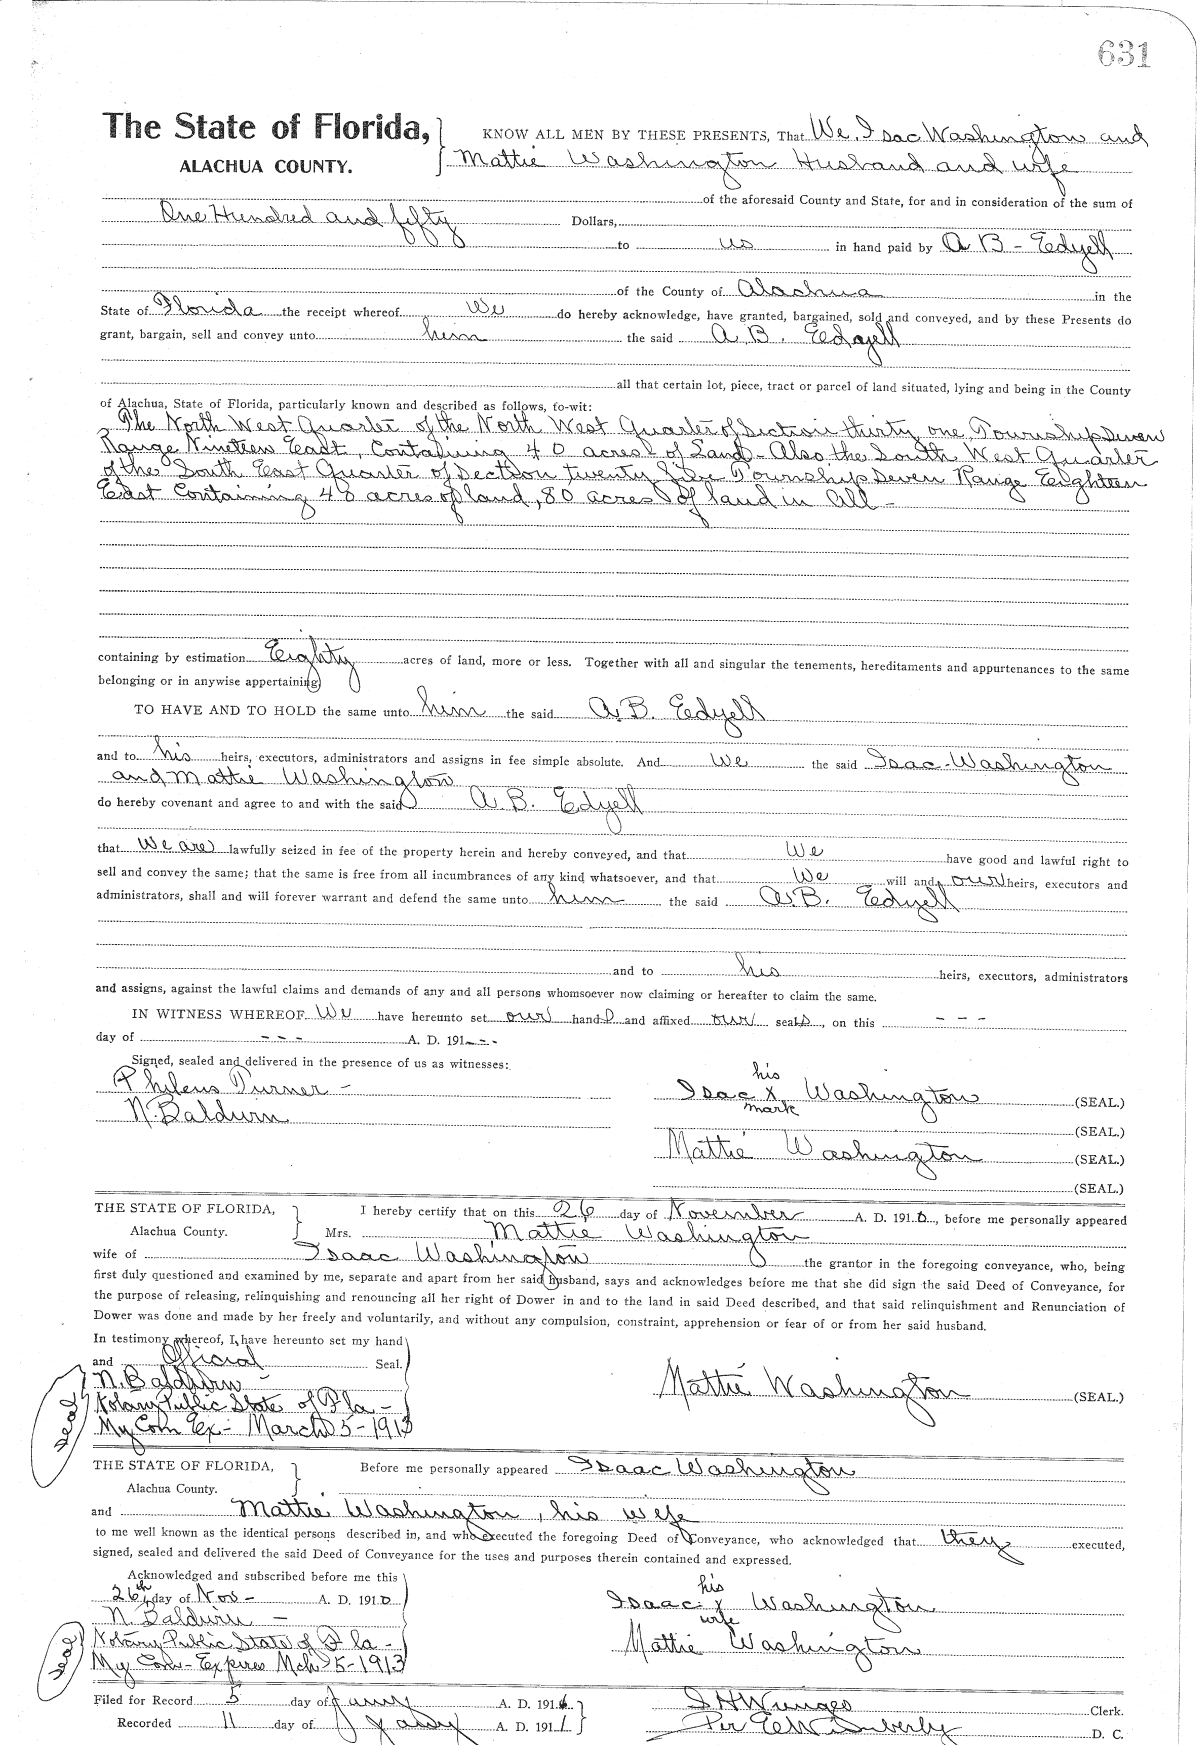 631
The State of Florida,
ALACHUA COUNTY.
KNOW ALL MEN BY THESE PRESENTS, That We, Isac Washington and
Mattie Washington Husband and wife
of the aforesaid County and State, for and in consideration of the sum of
One Hundred and fifty Dollars,
to us in hand paid by A B - Edyell
of the County of Alachua in the
State of Florida the receipt whereof We do hereby acknowledge, have granted, bargained, sold and conveyed, and by these Presents do
grant, bargain, sell and convey unto him the said A. B. Edyell
all that certain lot, piece, tract or parcel of land situated, lying and being in the County
of Alachua, State of Florida, particularly known and described as follows, to-wit:
The North West Quarter of the North West Quarter of Section thirty one, Township Seven
Range Nineteen East, Containing 40 acres of Land - Also the South West Quarter
of the South East Quarter of Section twenty Township Seven Range Eighteen
East Containing 40 acres of land, 80 acres of land in all -
containing by estimation Eighty acres of land, more or less. Together with all and singular the tenements, hereditaments and appurtenances to the same
belonging or in anywise appertaining
TO HAVE AND TO HOLD the same unto him the said A. B. Edyell
and to his heirs, executors, administrators and assigns in fee simple absolute. And We the said Isac Washington
and Mattie Washington
do hereby covenant and agree to and with the said A. B. Edyell
that we are lawfully seized in fee of the property herein and hereby conveyed, and that We have good and lawful right to
sell and convey the same; that the same is free from all incumbrances of any kind whatsoever, and that We will and our heirs, executors and
administrators, shall and will forever warrant and defend the same unto him the said A. B. Edyell
and to his heirs, executors, administrators
and assigns, against the lawful claims and demands of any and all persons whomsoever now claiming or hereafter to claim the same.
IN WITNESS WHEREOF We have hereunto set our hands and affixed our seals, on this - - -
day of - - - A. D. 191 - - -
Signed, sealed and delivered in the presence of us as witnesses:
Turner -
N. Baldwin
his
Isac X Washington (SEAL.)
mark
(SEAL.)
Mattie Washington (SEAL.)
(SEAL.)
THE STATE OF FLORIDA,
Alachua County.
I hereby certify that on this 26 day of November A. D. 1910, before me personally appeared
Mrs. Mattie Washington
wife of Isaac Washington the grantor in the foregoing conveyance, who, being
first duly questioned and examined by me, separate and apart from her said husband, says and acknowledges before me that she did sign the said Deed of Conveyance, for
the purpose of releasing, relinquishing and renouncing all her right of Dower in and to the land in said Deed described, and that said relinquishment and Renunciation of
Dower was done and made by her freely and voluntarily, and without any compulsion, constraint, apprehension or fear of or from her said husband.
In testimony whereof, I, have hereunto set my hand
and Official Seal.
N. Baldwin -
Notary Public State of Fla -
My Com Ex - March 5 - 1913
Seal
Mattie Washington (SEAL.)
THE STATE OF FLORIDA,
Alachua County.
Before me personally appeared Isaac Washington
and Mattie Washington, his wife
to me well known as the identical persons described in, and who executed the foregoing Deed of Conveyance, who acknowledged that they executed,
signed, sealed and delivered the said Deed of Conveyance for the uses and purposes therein contained and expressed.
Acknowledged and subscribed before me this
26th day of Nov - A. D. 1910
N. Baldwin -
Notary Public State of Fla -
My Com - Expires Mch 5 - 1913
Seal
his
Isaac X Washington
wife
Mattie Washington
Filed for Record 5 day of Jany A. D. 191
Clerk.
Recorded 11 day of Jany A. D. 1911
Per D. C.